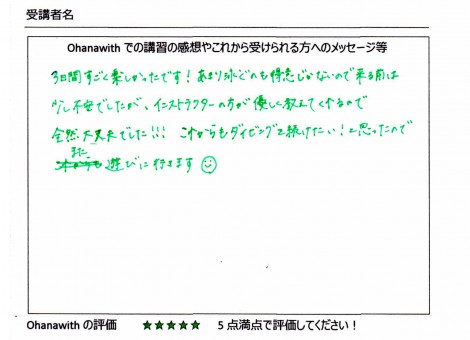 受講者名
Ohanawith での講習の感想やこれから受けられる方へのメッセージ等
3日間すごく楽しかったです！あまり泳ぐのも得意じゃないので来る前は
少し不安でしたが、インストラクターの方が優しく教えてくれるので
全然大丈夫でした!!! これからもダイビングを続けたい！と思ったので
また遊びに行きます
Ohanawith の評価 ★★★★★ 5 点満点で評価してください！